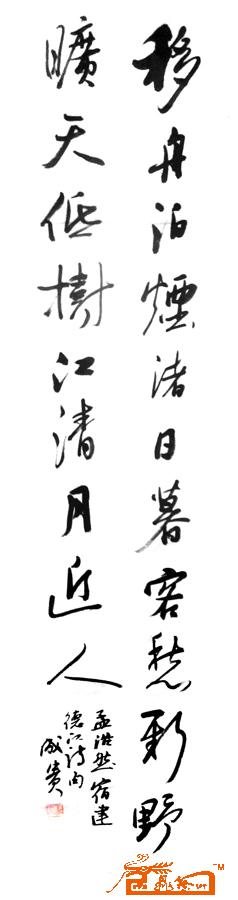 移舟泊煙渚日暮客愁新野
曠天低樹江清月近人
孟浩然宿建
德江詩句
成贵